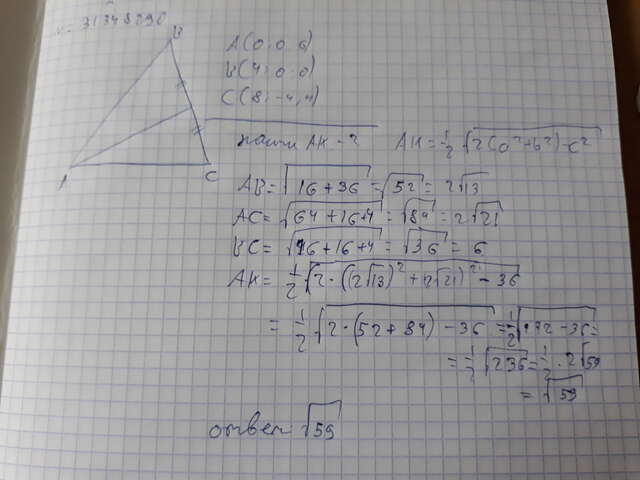 31348290
B
A(0; 0; 6)
B(4; 0; 0)
C(8; -4; 4)
Найти AK - ? AK = 1/2 √2(a²+b²)-c²
A C
AB = √16+36 = √52 = 2√13
AC = √64+16+4 = √84 = 2√21
BC = √16+16+4 = √36 = 6
AK = 1/2 √2·((2√13)²+(2√21)²-36
= 1/2 √2·(52+84)-36 = 1/2 √272-36 =
= 1/2 √236 = 1/2 · 2√59
= √59
ответ √59